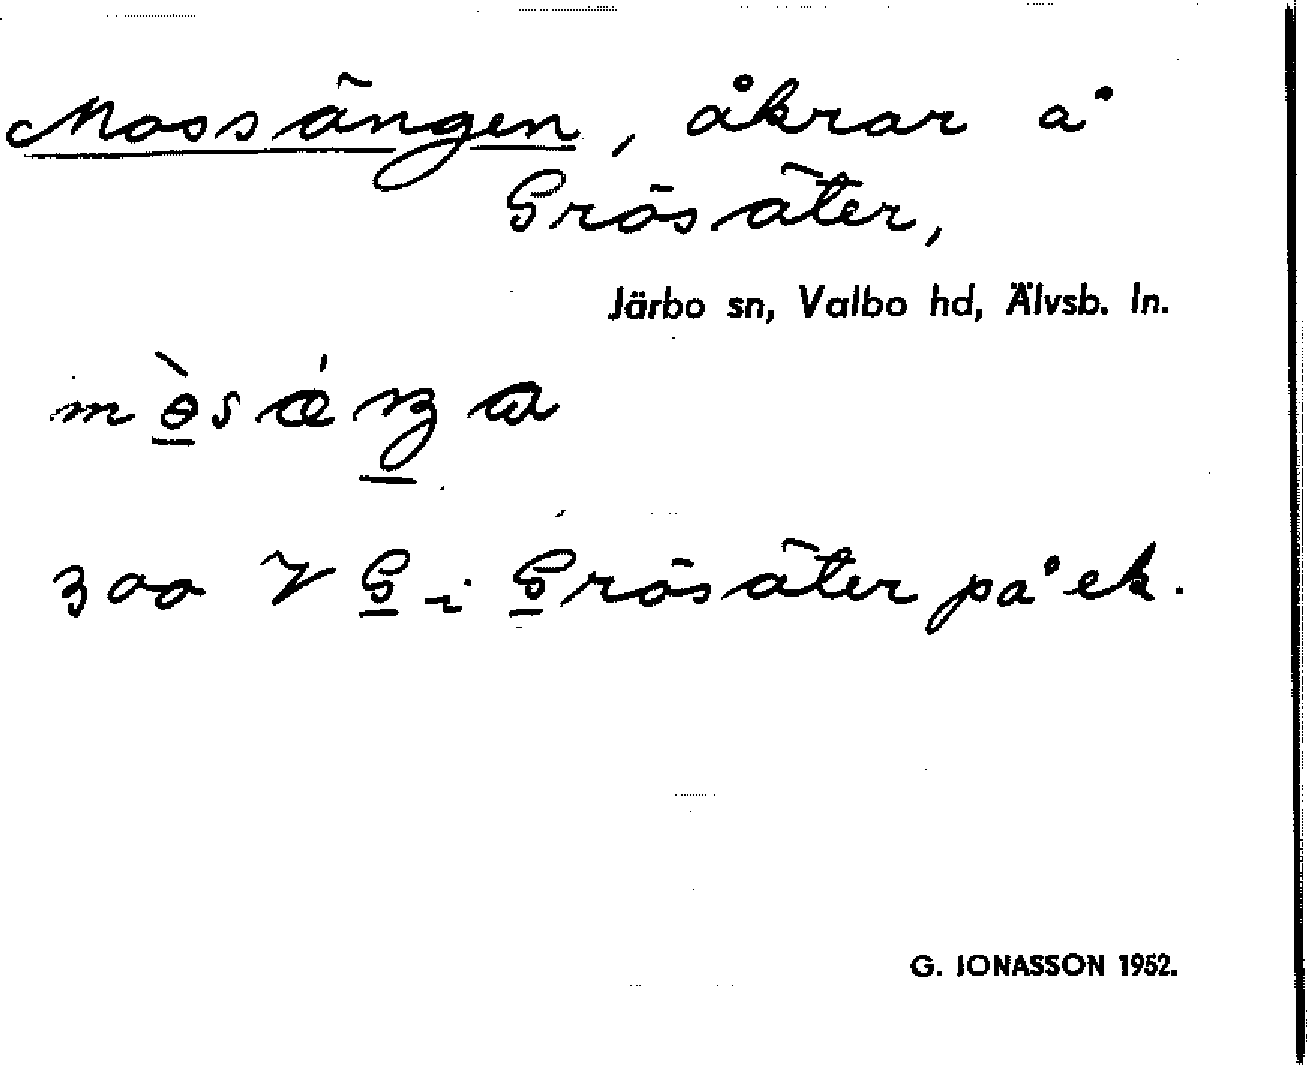 Mossängen, åkrar å
Grösäter,
Järbo sn, Valbo hd, Älvsb. ln.
300 V G i Grösäter på ek.
G. JONASSON 1952.